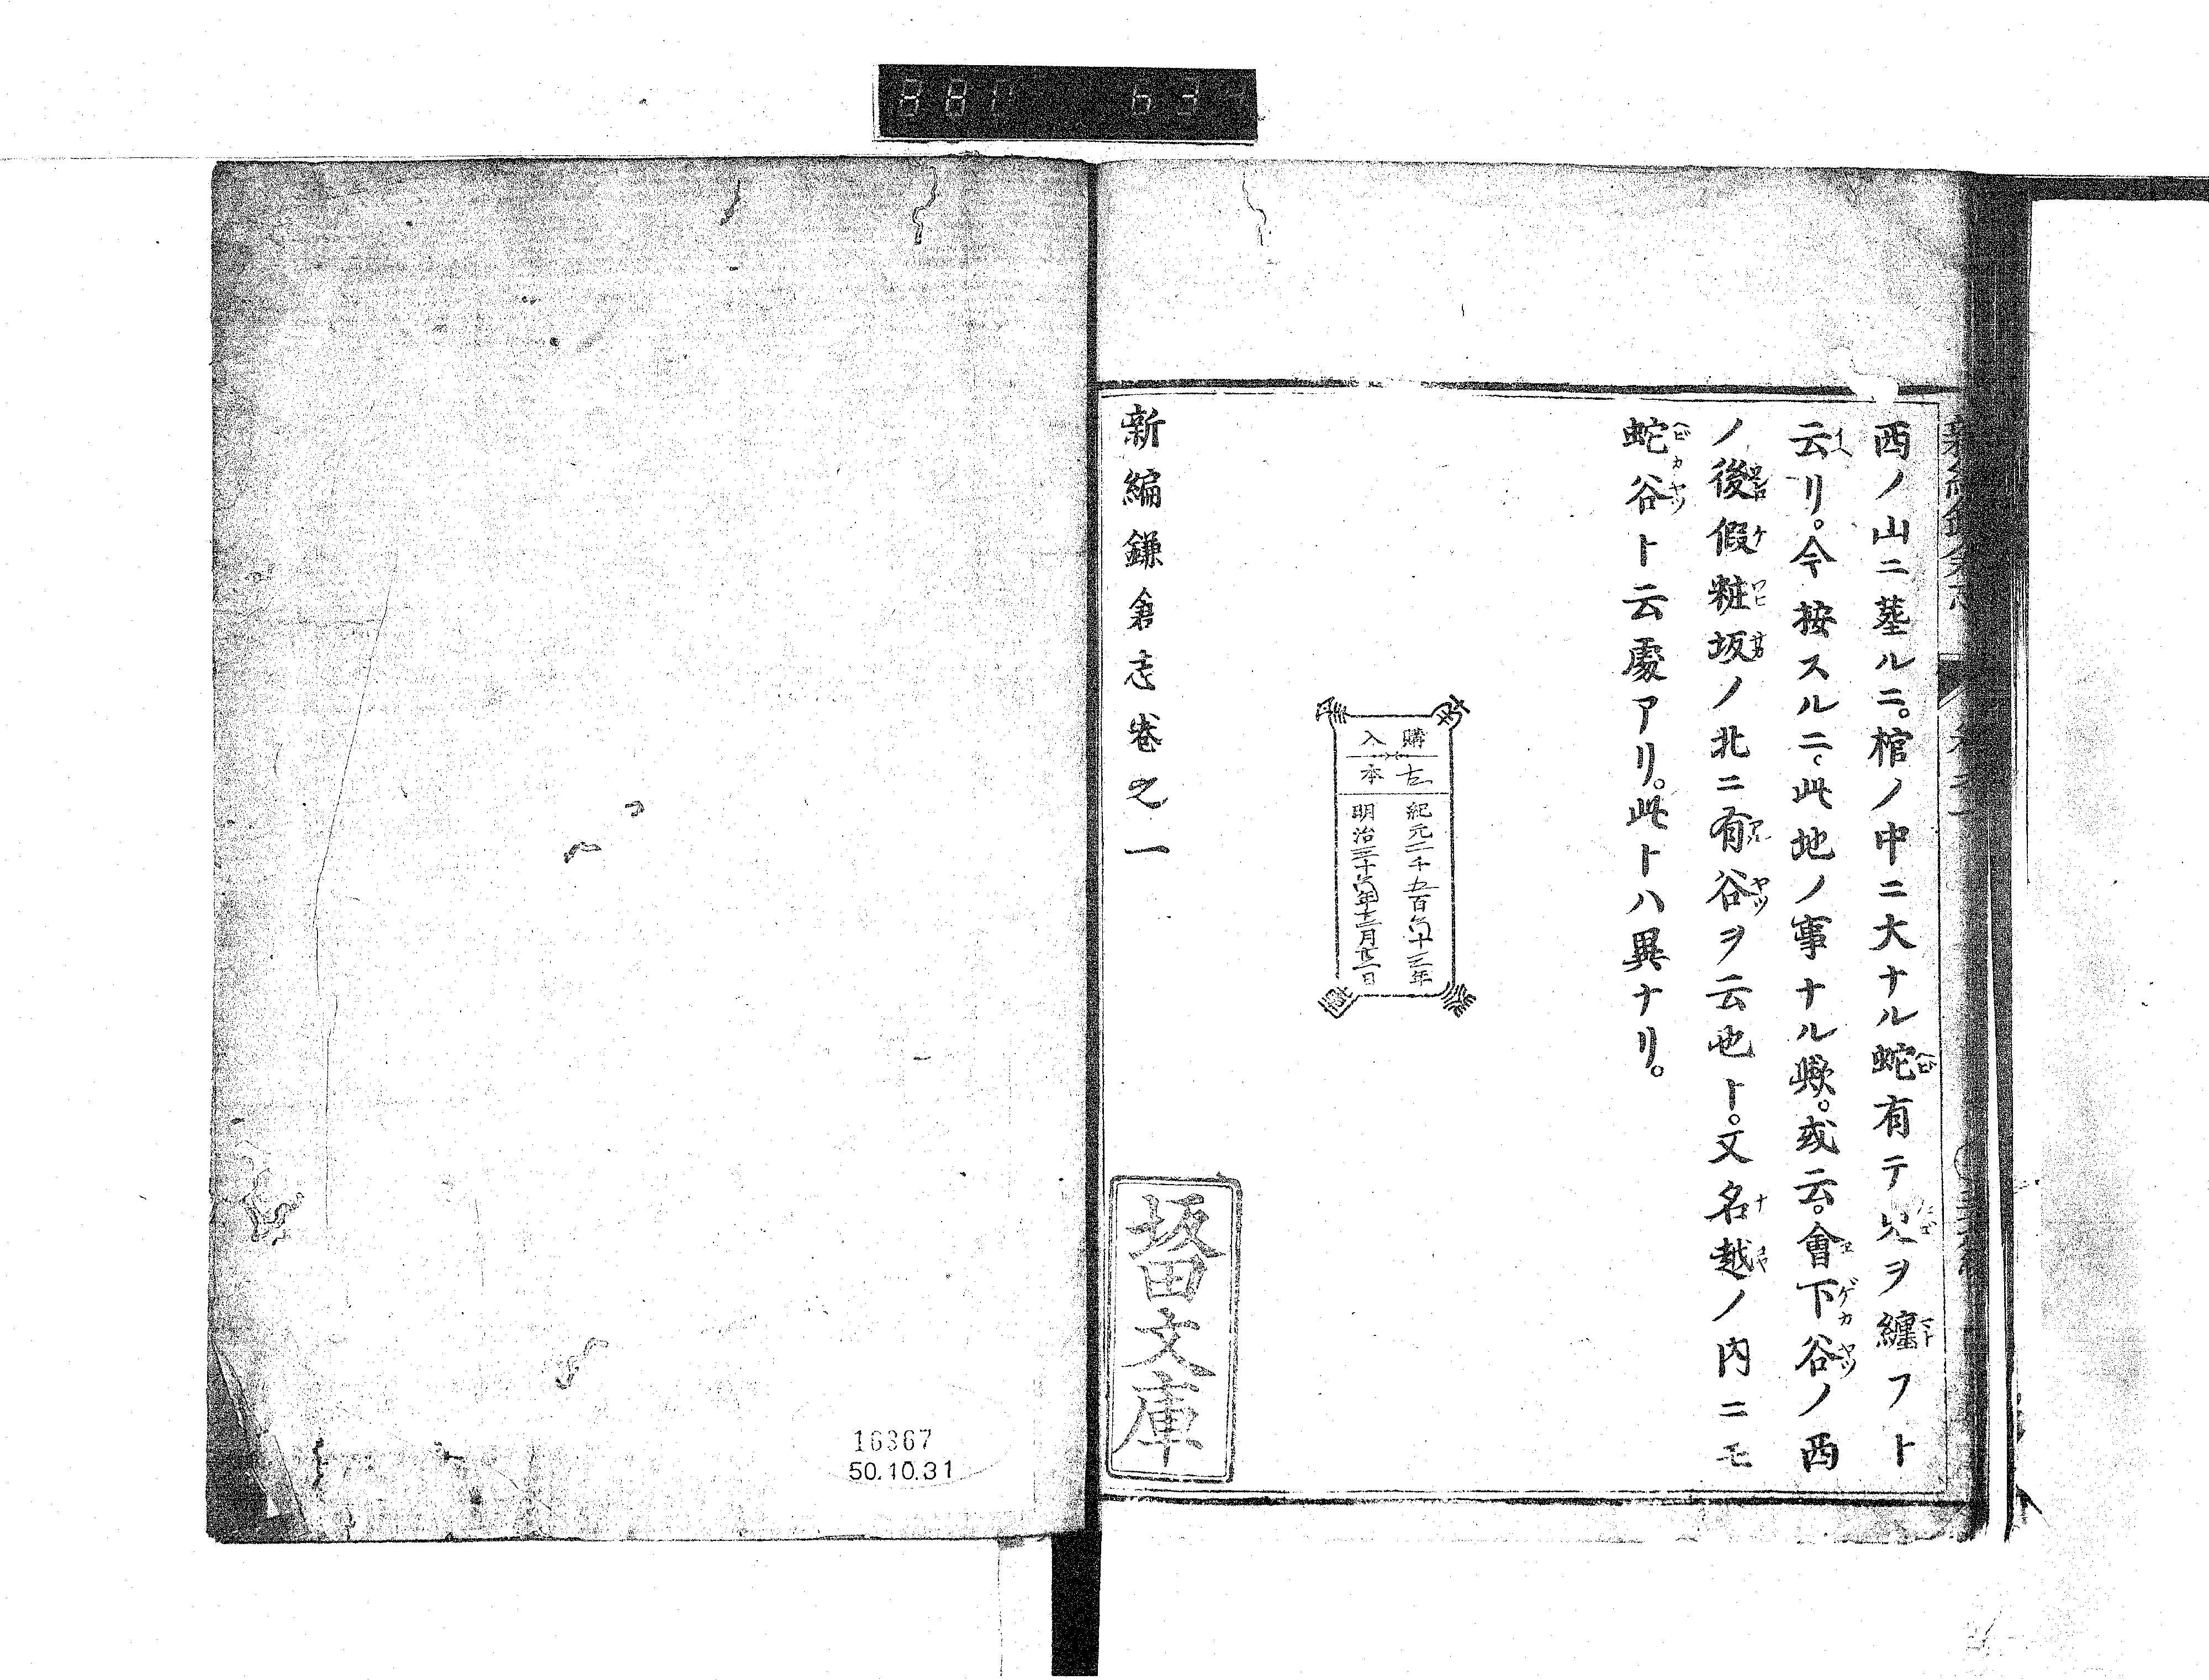 西ノ山ニ葬ルニ。棺ノ中ニ大ナル蛇有テ兒ヲ纏フト
云リ。今按スルニ、此地ノ事ナル歟。或云。會下谷ノ西
ノ後假粧坂ノ北ニ有谷ヲ云也ト。又名越ノ内ニモ
蛇谷ト云處アリ。此トハ異ナリ。
購入
古本
紀元二千五百六十三年
明治三十六年十二月廿一日
新編鎌倉志卷之一
坂田文庫
16367
50.10.31